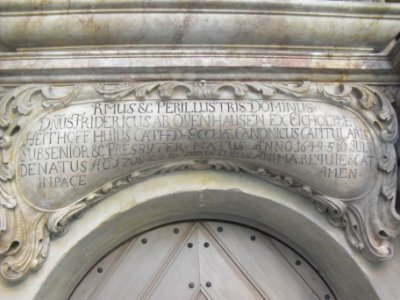 RMUS & PERILLUSTRIS DOMINUS
DNUS FRIDERICUS AB OYENHAUSEN EX EICHOLTZ ET
HEITHOFF HUIUS CATHED: ECCLIÆ CANONICUS CAPITULARIS
SUBSENIOR & PRESBYTER NATUS ANNO 1649 5 IULII
DENATUS AO 1708 ANIMA REQUIESCAT
IN PACE AMEN